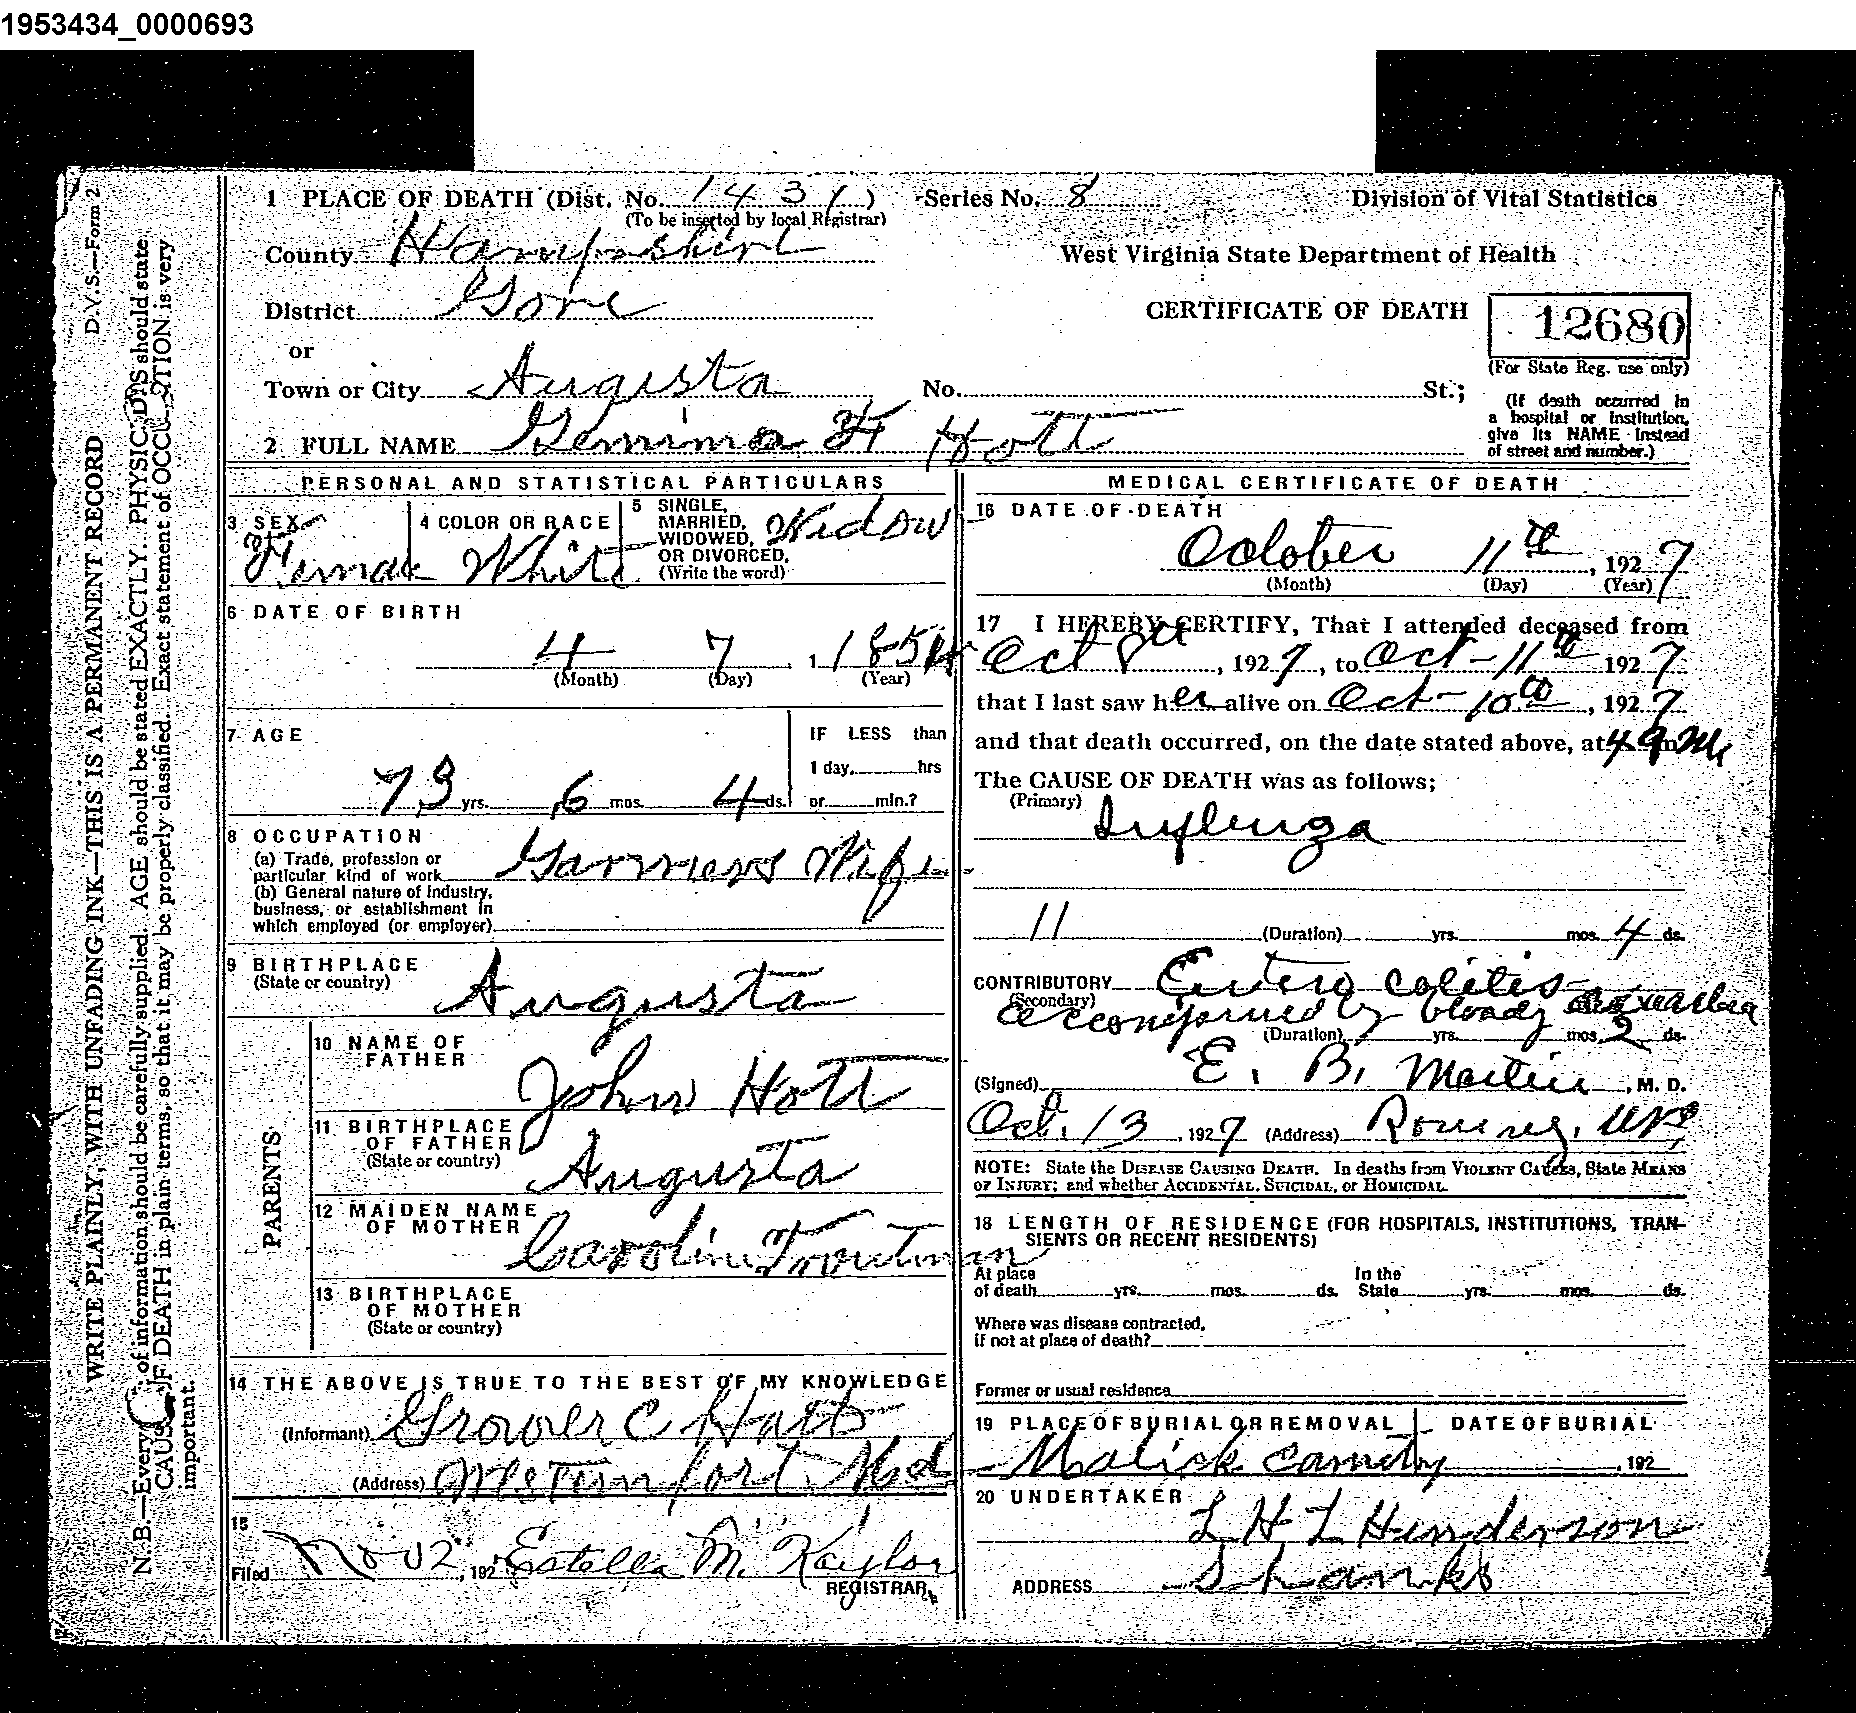 1953434_0000693
D.V.S.—Form 2
WRITE PLAINLY, WITH UNFADING INK—THIS IS A PERMANENT RECORD
N.B.—Every of information should be carefully supplied. AGE should be stated EXACTLY. PHYSIC S should state
CAUS F DEATH in plain terms, so that it may be properly classified. Exact statement of OCCU TION is very
important.
1 PLACE OF DEATH (Dist. No. 1431) Series No. 8 Division of Vital Statistics
(To be inserted by local Registrar)
County Hampshire West Virginia State Department of Health
District Gore CERTIFICATE OF DEATH 12680
or (For State Reg. use only)
Town or City Augusta No. St.;
(If death occurred in
a hospital or institution,
give its NAME instead
of street and number.)
2 FULL NAME Gemima Hott
PERSONAL AND STATISTICAL PARTICULARS
3 SEX Female
4 COLOR OR RACE White
5 SINGLE,
MARRIED,
WIDOWED,
OR DIVORCED.
(Write the word)
Widow
6 DATE OF BIRTH
4 7, 1 1854
(Month) (Day) (Year)
7 AGE
73 yrs. 6 mos. 4 ds.
IF LESS than
1 day, hrs
or min.?
8 OCCUPATION
(a) Trade, profession or
particular kind of work Farmers Wife
(b) General nature of industry,
business, or establishment in
which employed (or employer)
9 BIRTHPLACE
(State or country) Augusta
PARENTS
10 NAME OF
FATHER
John Hott
11 BIRTHPLACE
OF FATHER
(State or country) Augusta
12 MAIDEN NAME
OF MOTHER
Caroline Troutman
13 BIRTHPLACE
OF MOTHER
(State or country)
14 THE ABOVE IS TRUE TO THE BEST OF MY KNOWLEDGE
(Informant) Grover C Hott
(Address) Westernport Md
15
Filed Nov 2, 192 Estella M. Kaylor
REGISTRAR
MEDICAL CERTIFICATE OF DEATH
16 DATE OF DEATH
October 11th, 1927
(Month) (Day) (Year)
17 I HEREBY CERTIFY, That I attended deceased from
Oct 8th, 1927, to Oct-11th 1927
that I last saw her alive on Oct-10th, 1927
and that death occurred, on the date stated above, at 4 a m
The CAUSE OF DEATH was as follows;
(Primary) Influenza
11 (Duration) yrs. mos. 4 ds.
CONTRIBUTORY Entero colitis
(Secondary)
accompanied by bloody
(Duration) yrs. mos. 2 ds.
(Signed) E. B. Martin, M. D.
Oct. 13, 1927 (Address) Romney, WVa
NOTE: State the DISEASE CAUSING DEATH. In deaths from VIOLENT CAUSES, State MEANS
OF INJURY; and whether ACCIDENTAL, SUICIDAL, or HOMICIDAL.
18 LENGTH OF RESIDENCE (FOR HOSPITALS, INSTITUTIONS, TRAN-
SIENTS OR RECENT RESIDENTS)
At place In the
of death yrs. mos. ds. State yrs. mos. ds.
Where was disease contracted,
if not at place of death?
Former or usual residence
19 PLACE OF BURIAL OR REMOVAL DATE OF BURIAL
Malick , 192
20 UNDERTAKER
L H L Henderson
ADDRESS Shanks